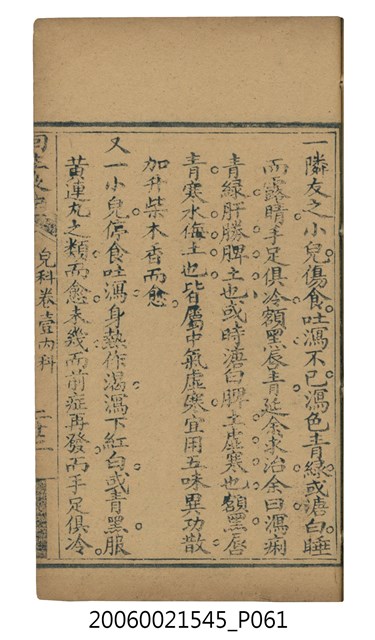 一隣友之小兒傷食吐瀉不已瀉色青綠或溏白睡
而露睛手足俱冷額黑唇青延余求治余曰瀉痢
青綠肝勝脾土也或時溏白脾土虛寒也額黑唇
青寒水侮土也皆屬中氣虛寒宜用五味異功散
加升柴木香而愈
又一小兒停食吐瀉身熱作渴瀉下紅白或青黑服
黃連丸之類而愈未幾而前症再發而手足俱冷
兒科卷壹內科
20060021545_P061